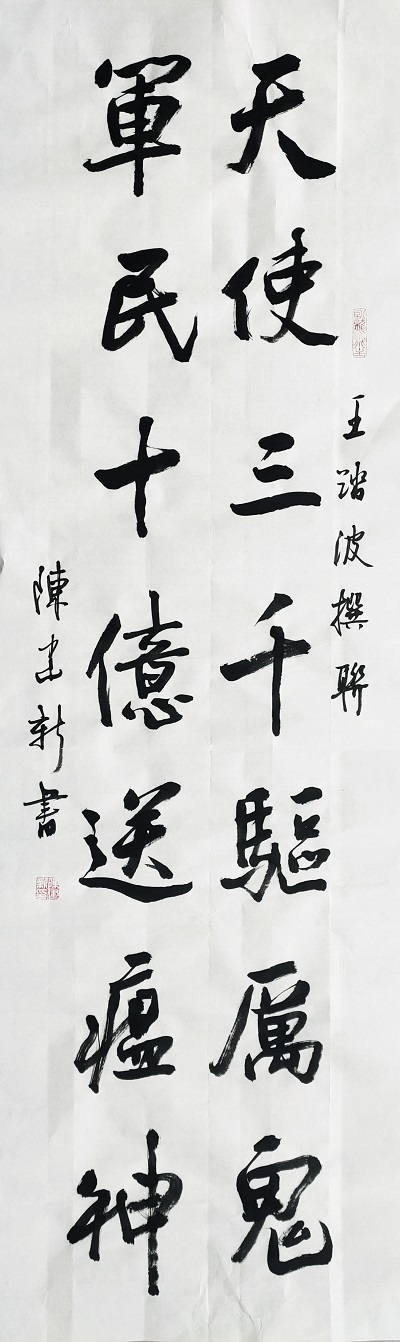 王踏波撰聯
天使三千驅厲鬼
軍民十億送瘟神
陳建新書